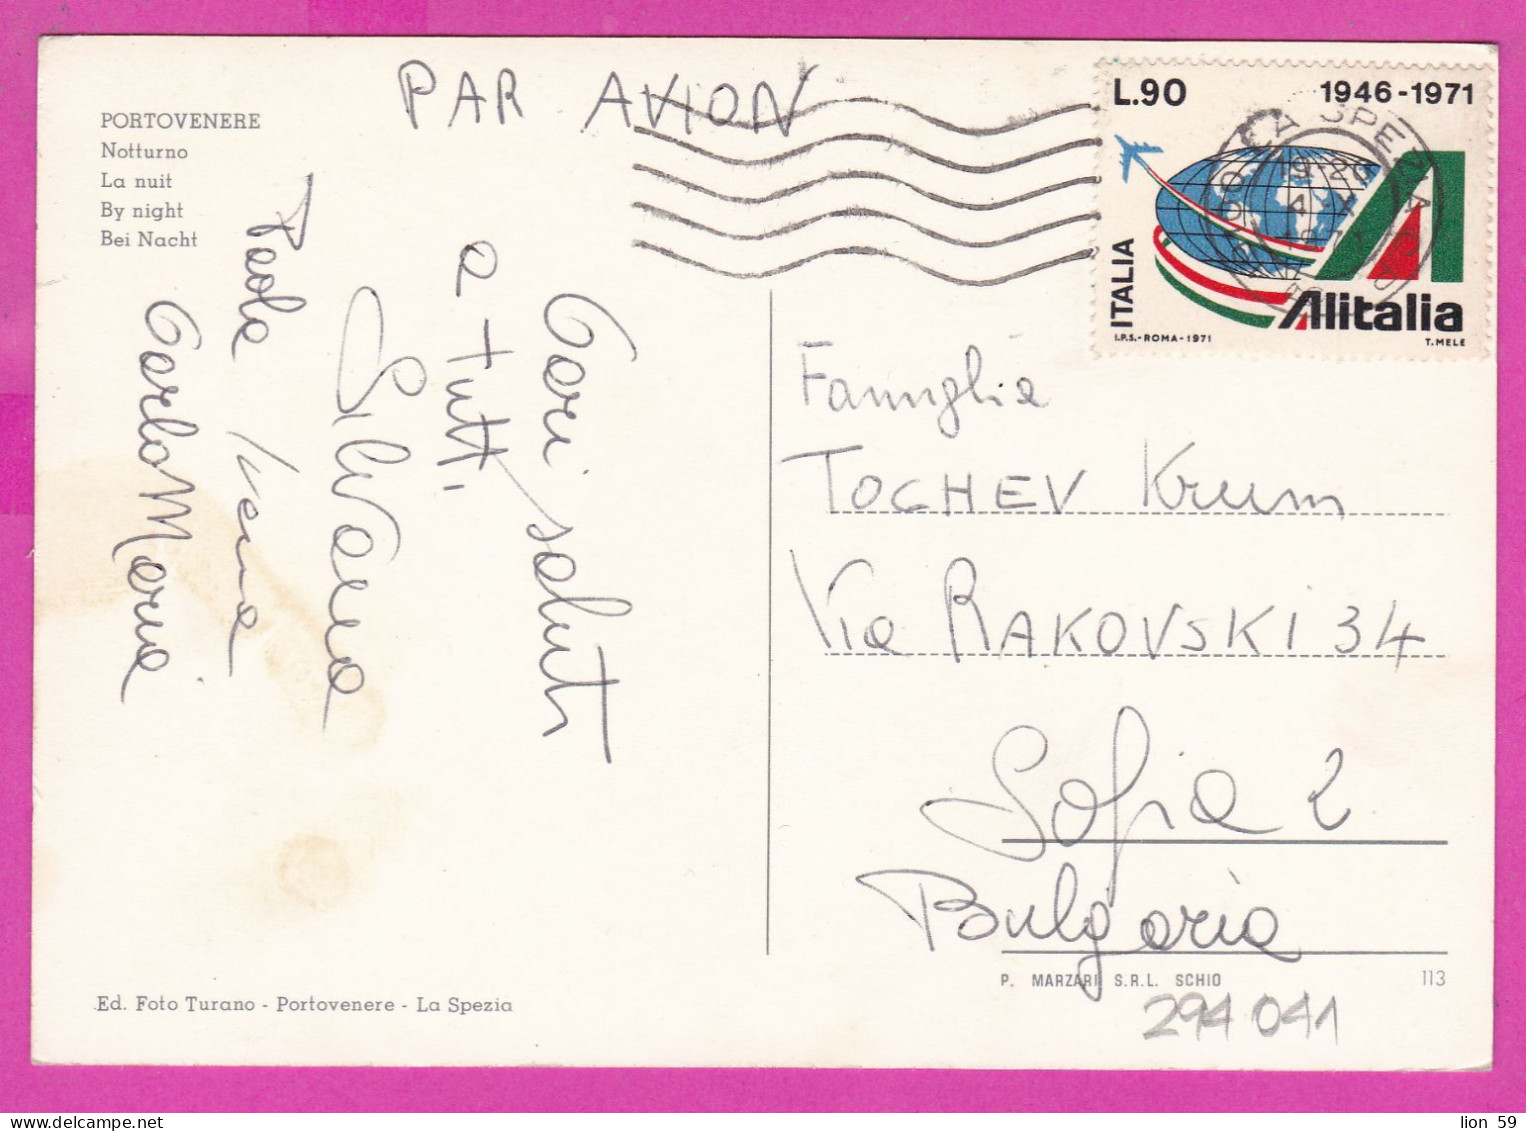 PORTOVENERE
Notturno
La nuit
By night
Bei Nacht
PAR AVION
Cari saluti
a tutti
Silvana
Paola
Carlo Maria
L.90 1946-1971
ITALIA
Alitalia
I.P.S.-ROMA-1971 T.MELE
LA SPEZIA
19-20
4 X
1971
Famiglia
TOCHEV Krum
Via RAKOVSKI 34
Sofia 2
Bulgaria
P. MARZARI S.R.L. SCHIO 113
294041
Ed. Foto Turano - Portovenere - La Spezia
lion 59